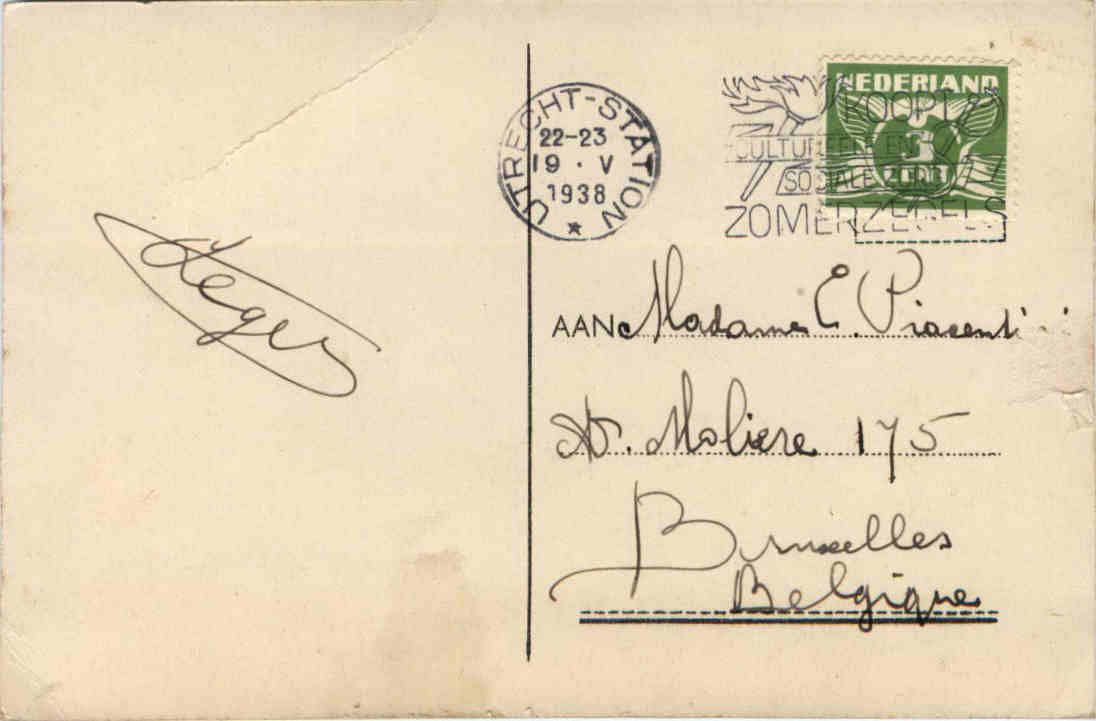 UTRECHT-STATION
22-23
19 · V
1938
KOOPT
CULTUREELE EN
SOCIALE ZORG
ZOMERZEGELS
NEDERLAND
3
AAN Madame E. Piacenti
Av. Moliere 175
Bruxelles
Belgique